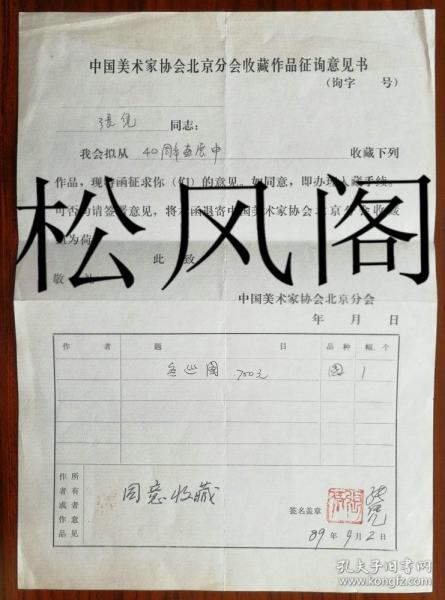 中国美术家协会北京分会收藏作品征询意见书
（询字　号）
张凭 同志：
我会拟从 40周年画展中 收藏下列
作品，现特函征求你（们）的意见。如同意，即办理入藏手续。
可否，请签署意见，将本函退寄中国美术家协会北京分会收藏
为荷
此致
敬礼
松风阁
中国美术家协会北京分会
年　月　日
作者　题目　品种　幅、个
巡图　700元　国　1
作者或作品所有者意见
同意收藏
签名盖章 张凭
89年9月2日
孔夫子旧书网
www.kongfz.com